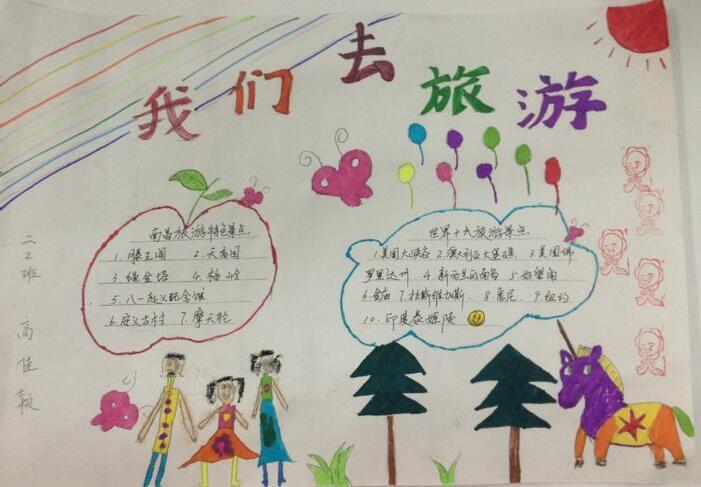 我们去旅游
南昌旅游特色景点
1.滕王阁 2.天香园
3.绳金塔 4.梅岭
5.八一起义纪念馆
6.安义古村 7.摩天轮
世界十大旅游景点
1.美国大峡谷 2.澳大利亚大堡礁 3.美国佛
罗里达州 4.新西兰的南岛 5.好望角
6.金庙 7.拉斯维加斯 8.悉尼 9.纽约
10.印度泰姬陵
二2班
高佳颖